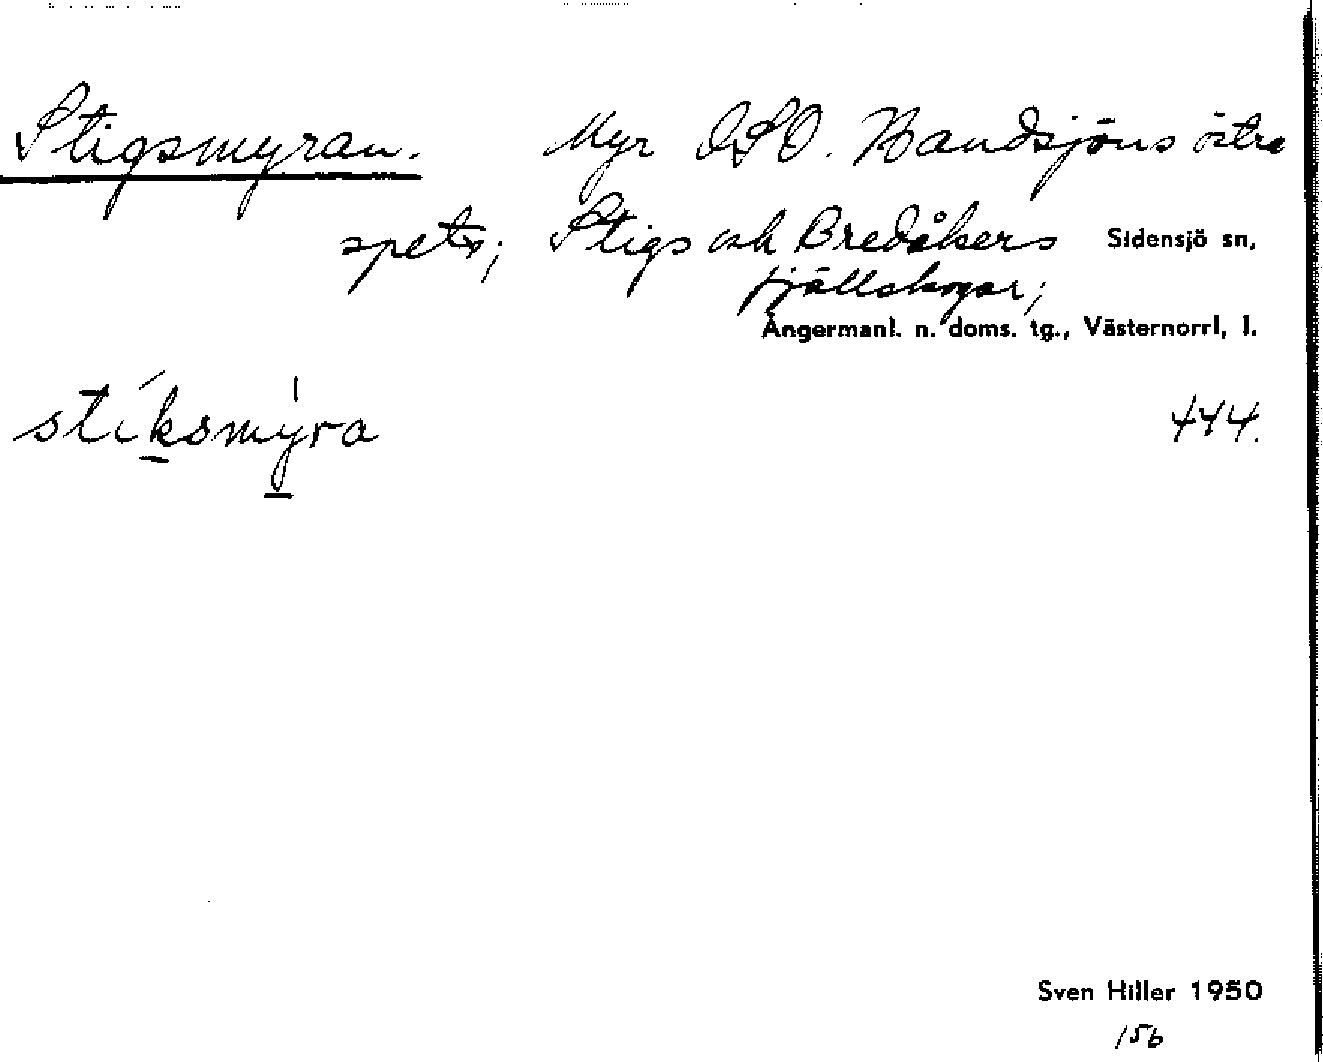 Stigsmyran. Myr OSO. Bandsjöns östra
spets; Stigs och Bredåkers Sidensjö sn,
fjällskogar;
Ångermanl. n. doms. tg., Västernorrl, l.
stiksmyra 444.
Sven Hiller 1950
156